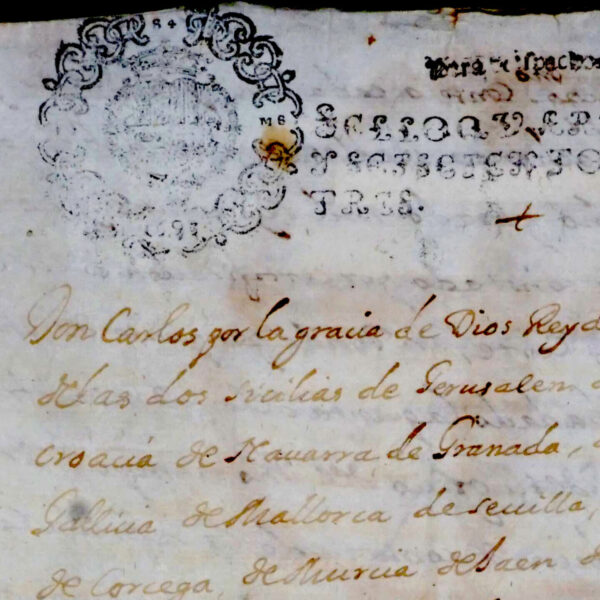 Para despachos
SELLO QVAR
Y SEISCIENTO
TRES.
Don Carlos por la gracia de Dios Rey d
delas dos sicilias de Gerusalem d
croacia de Navarra de Granada,
Gallicia de Mallorca de sevilla,
de Corcega, de Murcia de Jaen d